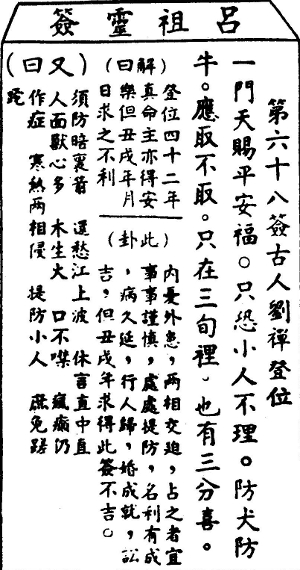 呂祖靈簽
第六十八簽古人劉禪登位
一門天賜平安福。只恐小人不理。防犬防
牛。應取不取。只在三旬裡。也有三分喜。
(解曰)
登位四十二年
真命主亦得安
樂但丑戌年月
日求之不利
(此卦)
內憂外患,兩相交迫,占之者宜
事事謹慎,處處提防,名利有成
,病久延,行人歸,婚成就,訟
吉,但丑戌年求得此簽不吉。
(又曰)
須防暗裏箭 還愁江上波 休言直中直
人面獸心多 木生火 口不喋 瘋癲仍
作症 寒熱兩相侵 提防小人 庶免蹉
跎